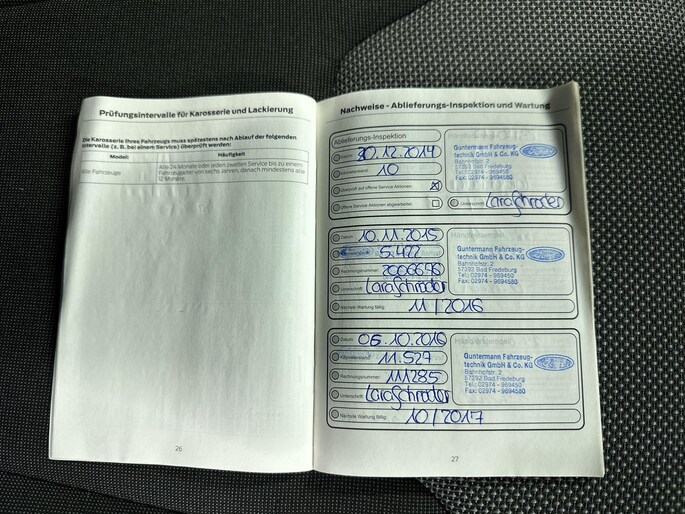 Prüfungsintervalle für Karosserie und Lackierung
Die Karosserie Ihres Fahrzeugs muss spätestens nach Ablauf der folgenden
Intervalle (z. B. bei einem Service) überprüft werden:
Model: Häufigkeit
Alle Fahrzeuge Alle 24 Monate oder jeden zweiten Service bis zu einem
Fahrzeugalter von sechs Jahren, danach mindestens alle
12 Monate.
26
Nachweise - Ablieferungs-Inspektion und Wartung
Ablieferungs-Inspektion
30.12.2014
10
Überprüft auf offene Service Aktionen:
Offene Service Aktionen abgearbeitet:
Guntermann Fahrzeug-
technik GmbH & Co. KG
Bahnhofstr. 2
57392 Bad Fredeburg
Tel.: 02974 - 969450
Fax: 02974 - 9694580
Unterschrift Lara Schröder
Datum: 10.11.2015
5.422
Rechnungsnummer:
Unterschrift: Lara Schröder
Nächste Wartung fällig: 11/2016
Guntermann Fahrzeug-
technik GmbH & Co. KG
Bahnhofstr. 2
57392 Bad Fredeburg
Tel.: 02974 - 969450
Fax: 02974 - 9694580
Datum: 06.10.2016
Kilometerstand: 11.527
Rechnungsnummer: 111285
Unterschrift: Lara Schröder
Nächste Wartung fällig: 10/2017
Guntermann Fahrzeug-
technik GmbH & Co. KG
Bahnhofstr. 2
57392 Bad Fredeburg
Tel.: 02974 - 969450
Fax: 02974 - 9694580
27